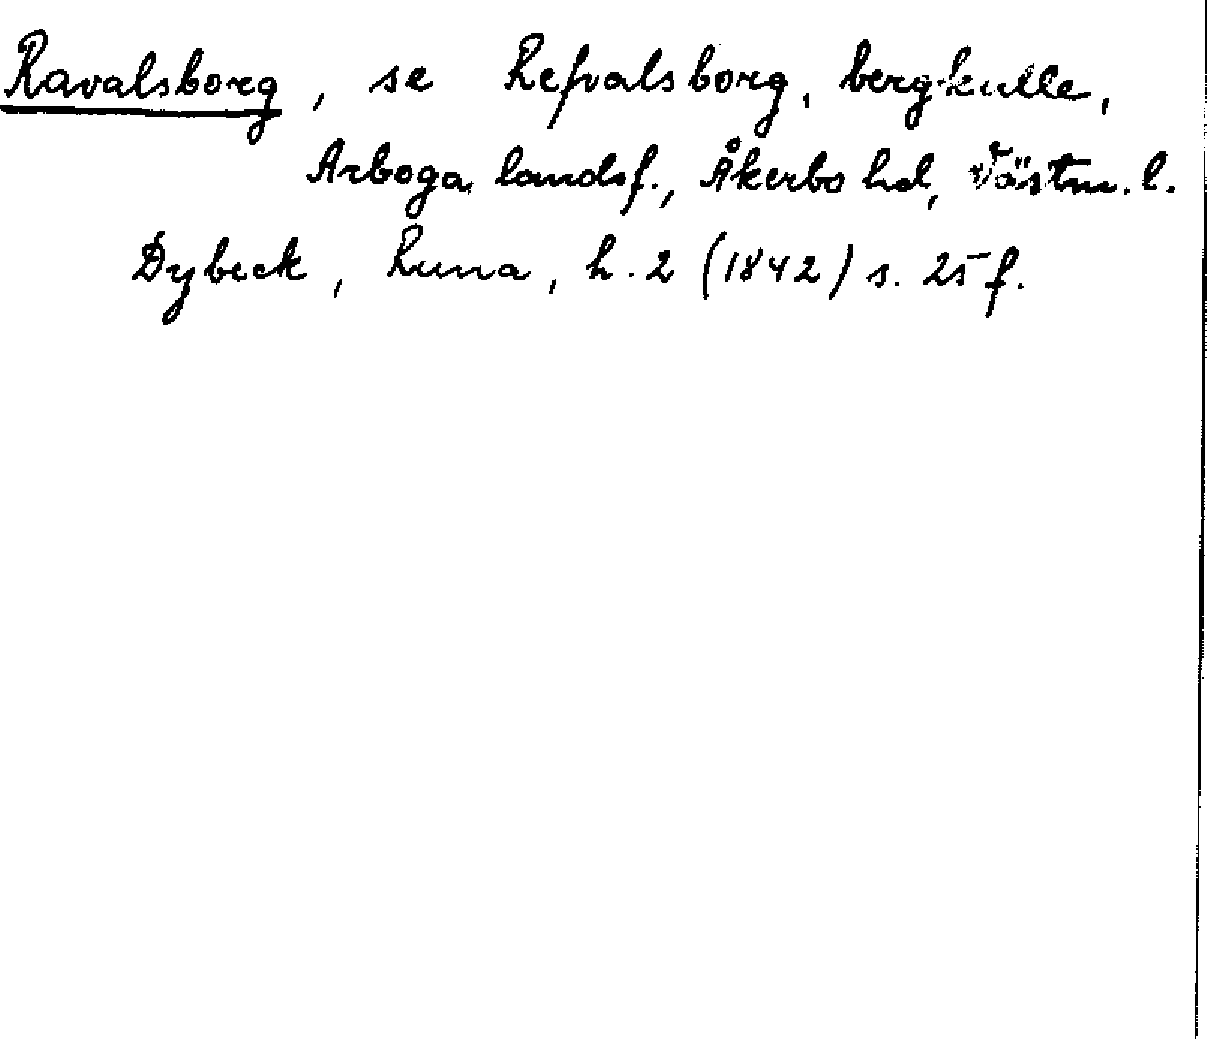 Ravalsborg, se Refvalsborg, bergkulle,
Arboga landsf., Åkerbo hd, Västm. l.
Dybeck, Runa, h. 2 (1842) s. 25 f.